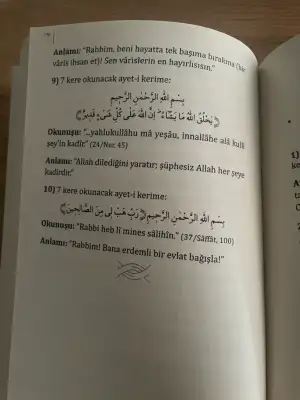 Anlamı: "Rabbim, beni hayatta tek başıma bırakma (bir
vâris ihsan et)! Sen vârislerin en hayırlısısın."
9) 7 kere okunacak ayet-i kerime:
بِسْمِ اللهِ الرَّحْمٰنِ الرَّحِيمِ
﴿يَخْلُقُ اللهُ مَا يَشَٓاءُ اِنَّ اللهَ عَلٰى كُلِّ شَيْءٍ قَدِيرٌ﴾
Okunuşu: "...yahlukullâhu mâ yeşâu, innallâhe alâ kulli
şey'in kadîr." (24/Nur, 45)
Anlamı: "Allah dilediğini yaratır; şüphesiz Allah her şeye
kadirdir."
10) 7 kere okunacak ayet-i kerime:
بِسْمِ اللهِ الرَّحْمٰنِ الرَّحِيمِ ﴿رَبِّ هَبْ لِي مِنَ الصَّالِحِينَ﴾
Okunuşu: "Rabbi heb lî mines sâlihîn." (37/Sâffât, 100)
Anlamı: "Rabbim! Bana erdemli bir evlat bağışla!"